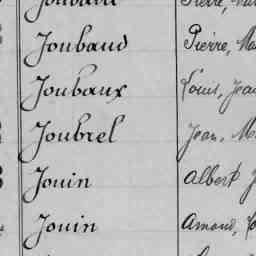 Joubaud Pierre, Ma
Joubaux Louis, Jea
Joubrel Jean, M
Jouin Albert J
Jouin Amand,